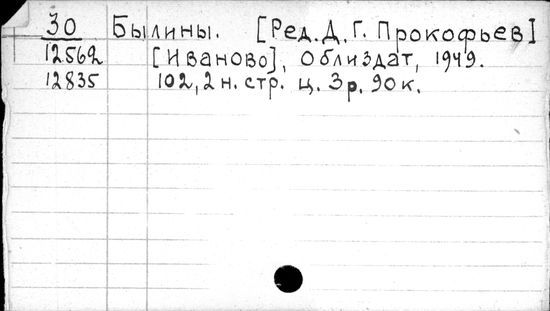 30 Былины. [Ред. Д. Г. Прокофьев]
12562 [Иваново], Облиздат, 1949.
12835 102, 2 н. стр. ц. 3 р. 90 к.